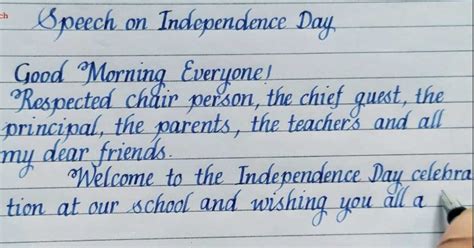 ch
Speech on Independence Day
Good Morning Everyone!
Respected chair person, the chief guest, the
principal, the parents, the teachers and all
my dear friends.
Welcome to the Independence Day celebra
tion at our school and wishing you all a